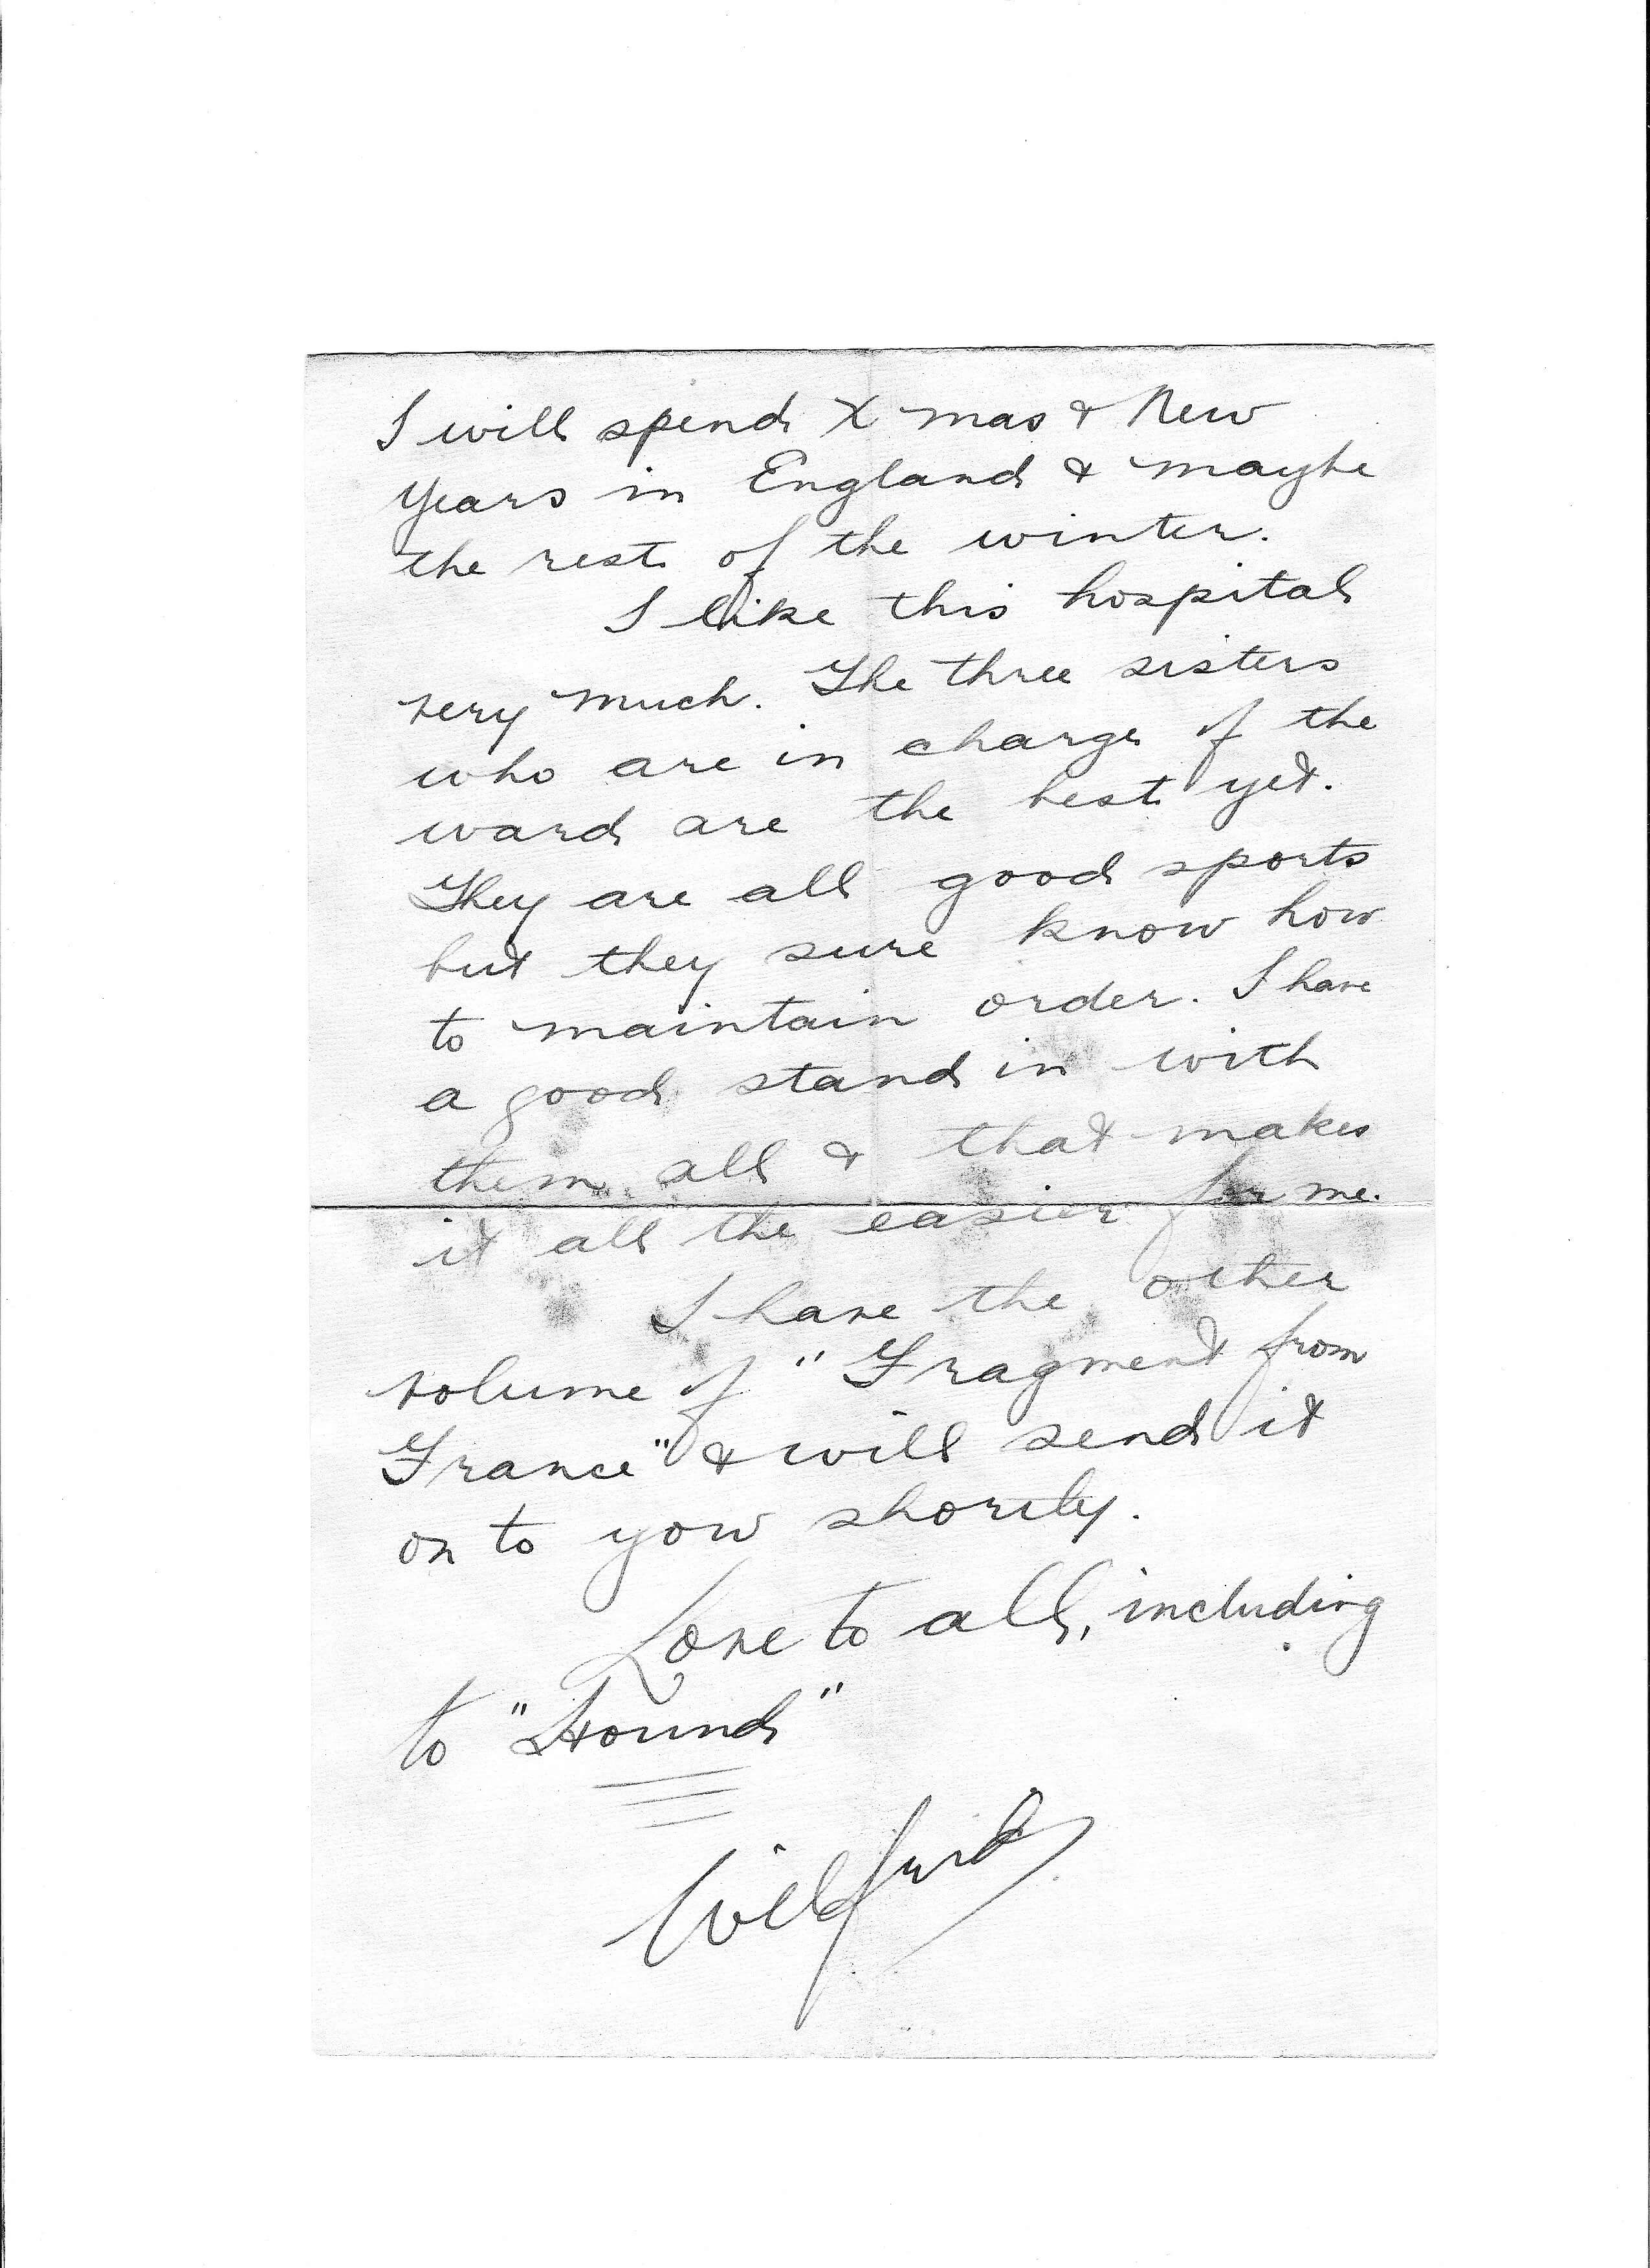 I will spend X mas & New
Years in England & maybe
the rest of the winter.
I like this hospital
very much. The three sisters
who are in charge of the
ward are the best yet.
They are all good sports
but they sure know how
to maintain order. I have
a good stand in with
them all & that makes
it all the easier for me.
I have the other
volume of "Fragment from
France" & will send it
on to you shortly.
Love to all, including
to "Hound"
Wilfrid